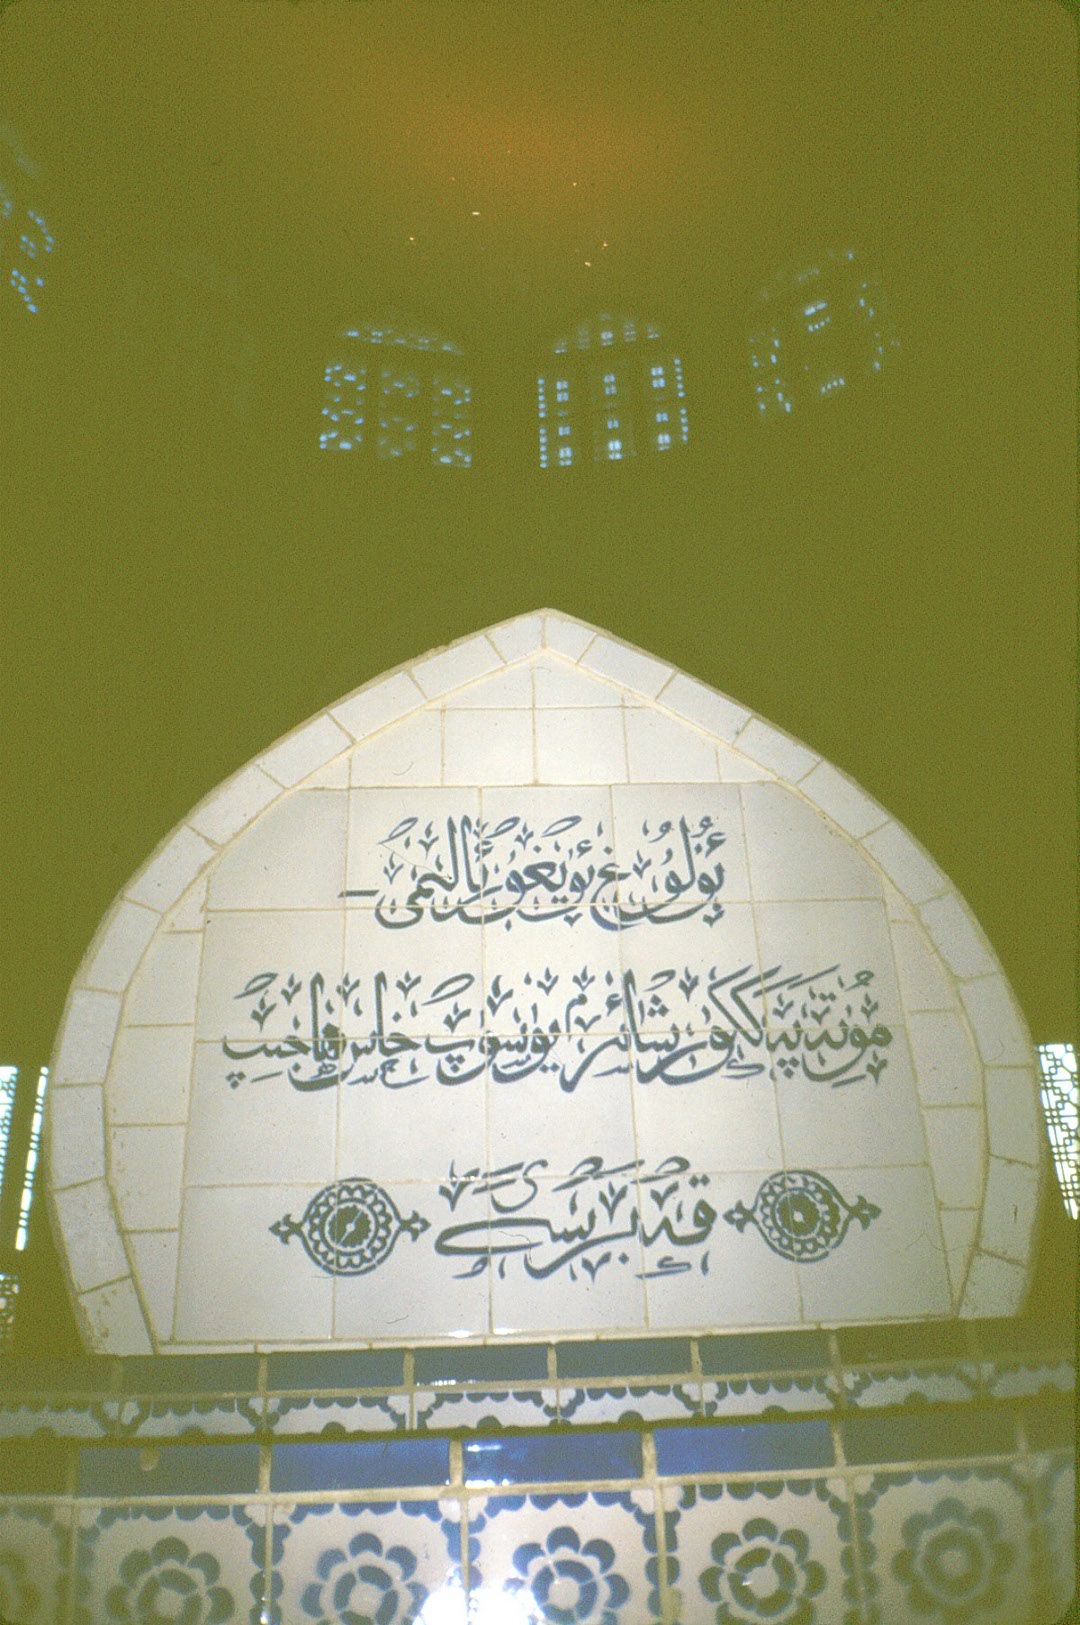 ئۇلۇغ ئۇيغۇر ئالىمى —
مۇتەپەككۇر شائىر يۈسۈپ خاس ھاجىپ
قەبرىسى